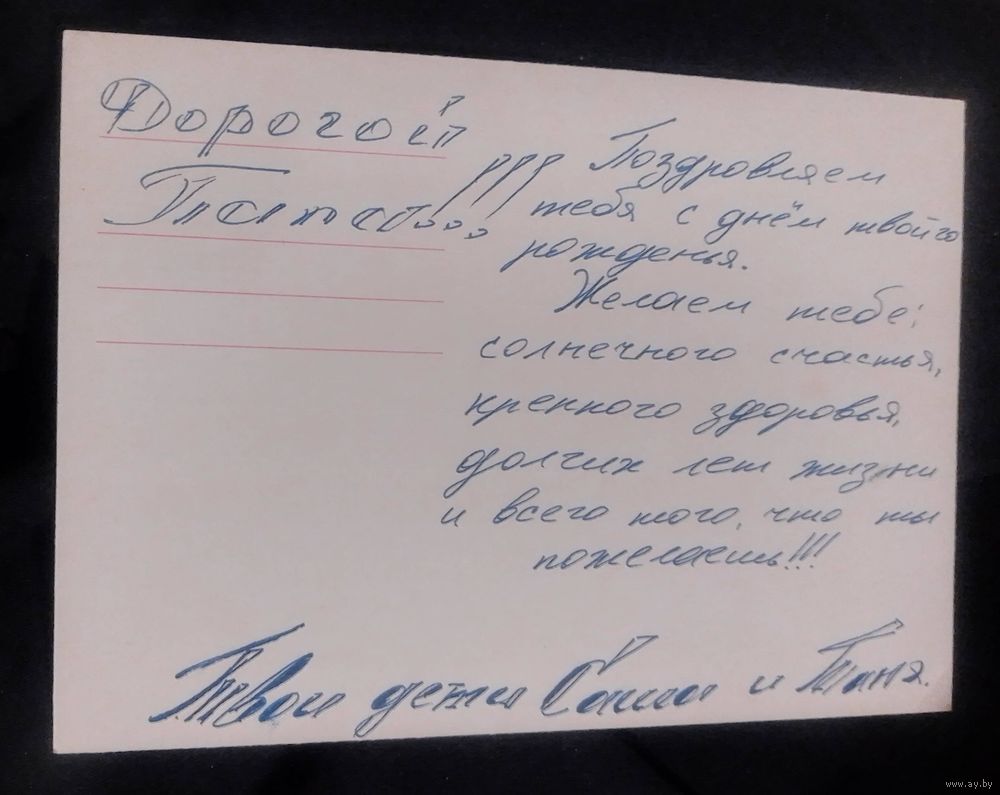 Дорогой
Папа!!!
Поздровляем
тебя с днём твойго
рожденья.
Желаем тебе:
солнечного счастья,
крепкого здоровья,
долгих лет жизни
и всего того, что ты
пожелаешь!!!
Твои дети Саша и Таня.
www.ay.by